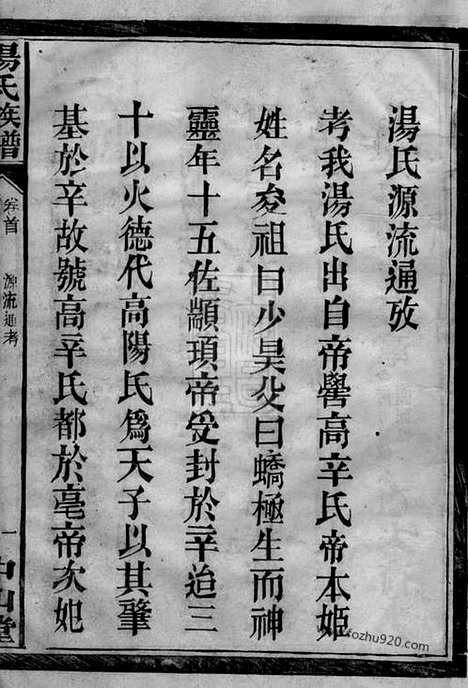 湯氏源流通攷
考我湯氏出自帝嚳高辛氏帝本姬
姓名夋祖曰少昊父曰蟜極生而神
靈年十五佐顓頊帝受封於辛迨三
十以火德代高陽氏為天子以其肇
基於辛故號高辛氏都於亳帝次妃
湯氏族譜
卷首
源流通考
一
中山堂
fozhu920.com